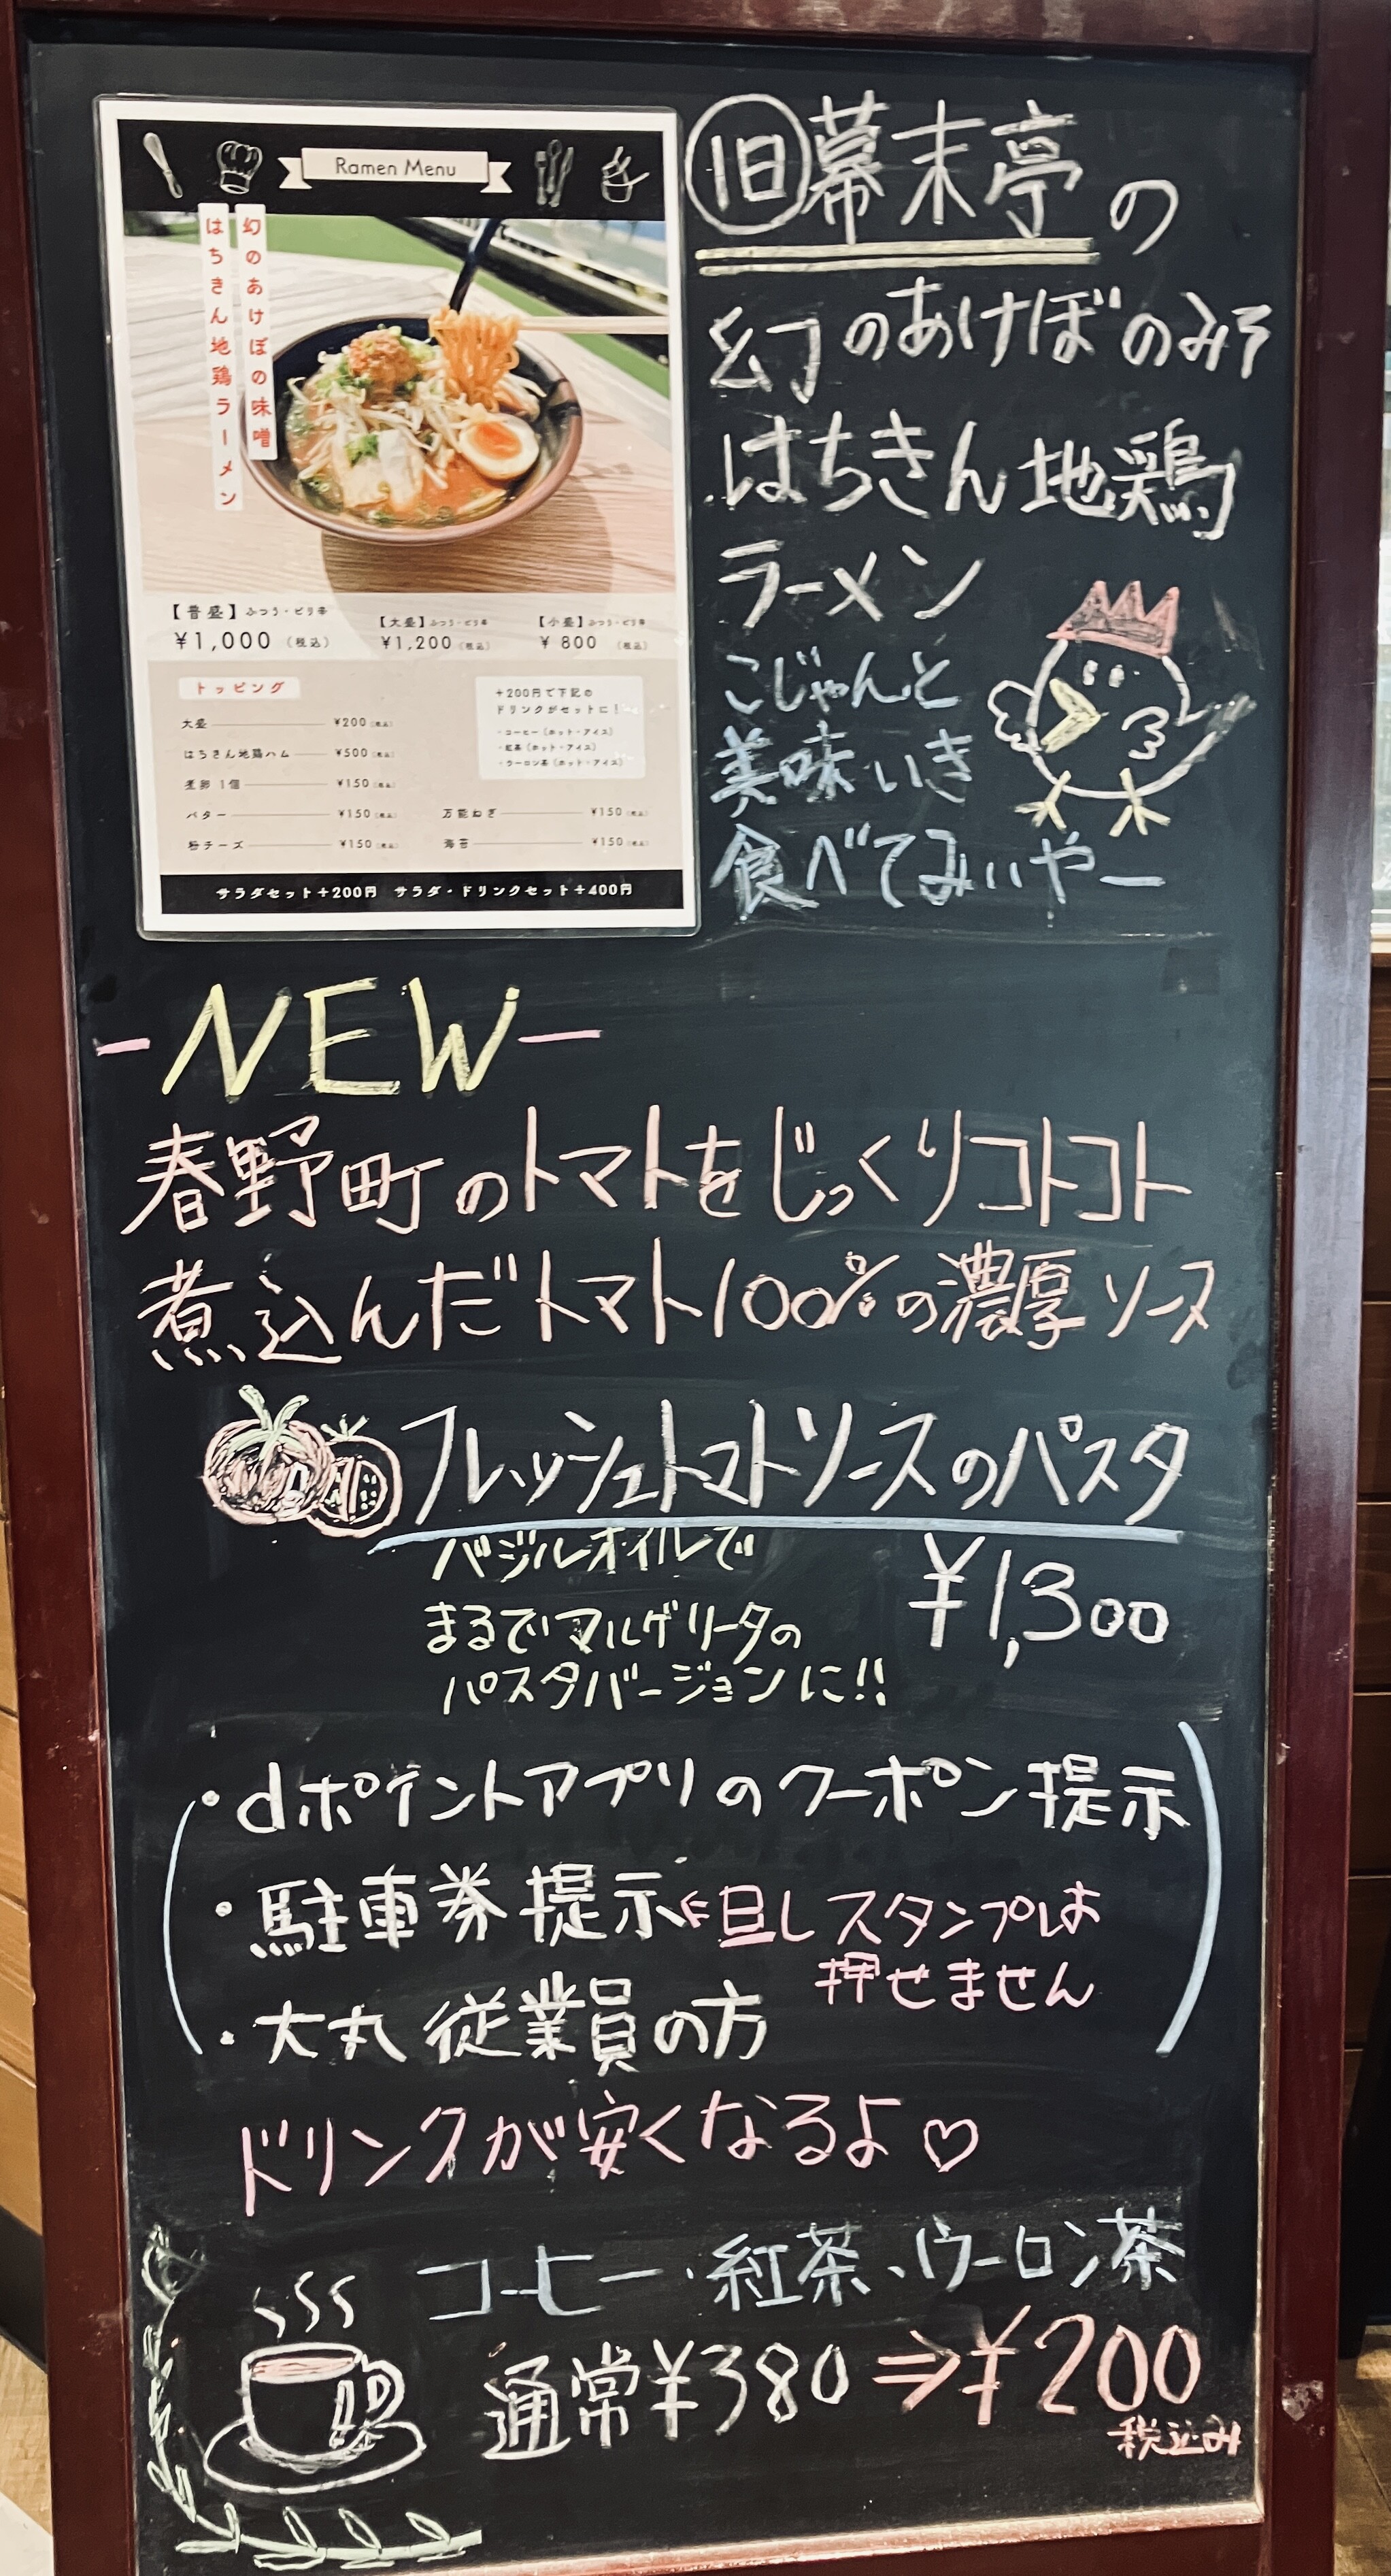 Ramen Menu
幻のあけぼの味噌
はちきん地鶏ラーメン
【普盛】ふつう・ピリ辛
¥1,000 (税込)
【大盛】ふつう・ピリ辛
¥1,200 (税込)
【小盛】ふつう・ピリ辛
¥ 800 (税込)
トッピング
大盛 ¥200 (税込)
はちきん地鶏ハム ¥500 (税込)
煮卵 1個 ¥150 (税込)
バター ¥150 (税込)
粉チーズ ¥150 (税込)
+200円で下記の
ドリンクがセットに!
・コーヒー (ホット・アイス)
・紅茶 (ホット・アイス)
・ウーロン茶 (ホット・アイス)
万能ねぎ ¥150 (税込)
海苔 ¥150 (税込)
サラダセット+200円 サラダ・ドリンクセット+400円
旧幕末亭の
幻のあけぼのみそ
はちきん地鶏
ラーメン
こじゃんと
美味いき
食べてみいやー
-NEW-
春野町のトマトをじっくりコトコト
煮込んだトマト100%の濃厚ソース
フレッシュトマトソースのパスタ
バジルオイルで
まるでマルゲリータの
パスタバージョンに!!
¥1,300
・dポイントアプリのクーポン提示
・駐車券提示←但しスタンプは
押せません
・大丸従業員の方
ドリンクが安くなるよ♡
コーヒー・紅茶、ウーロン茶
通常¥380⇒¥200
税込み